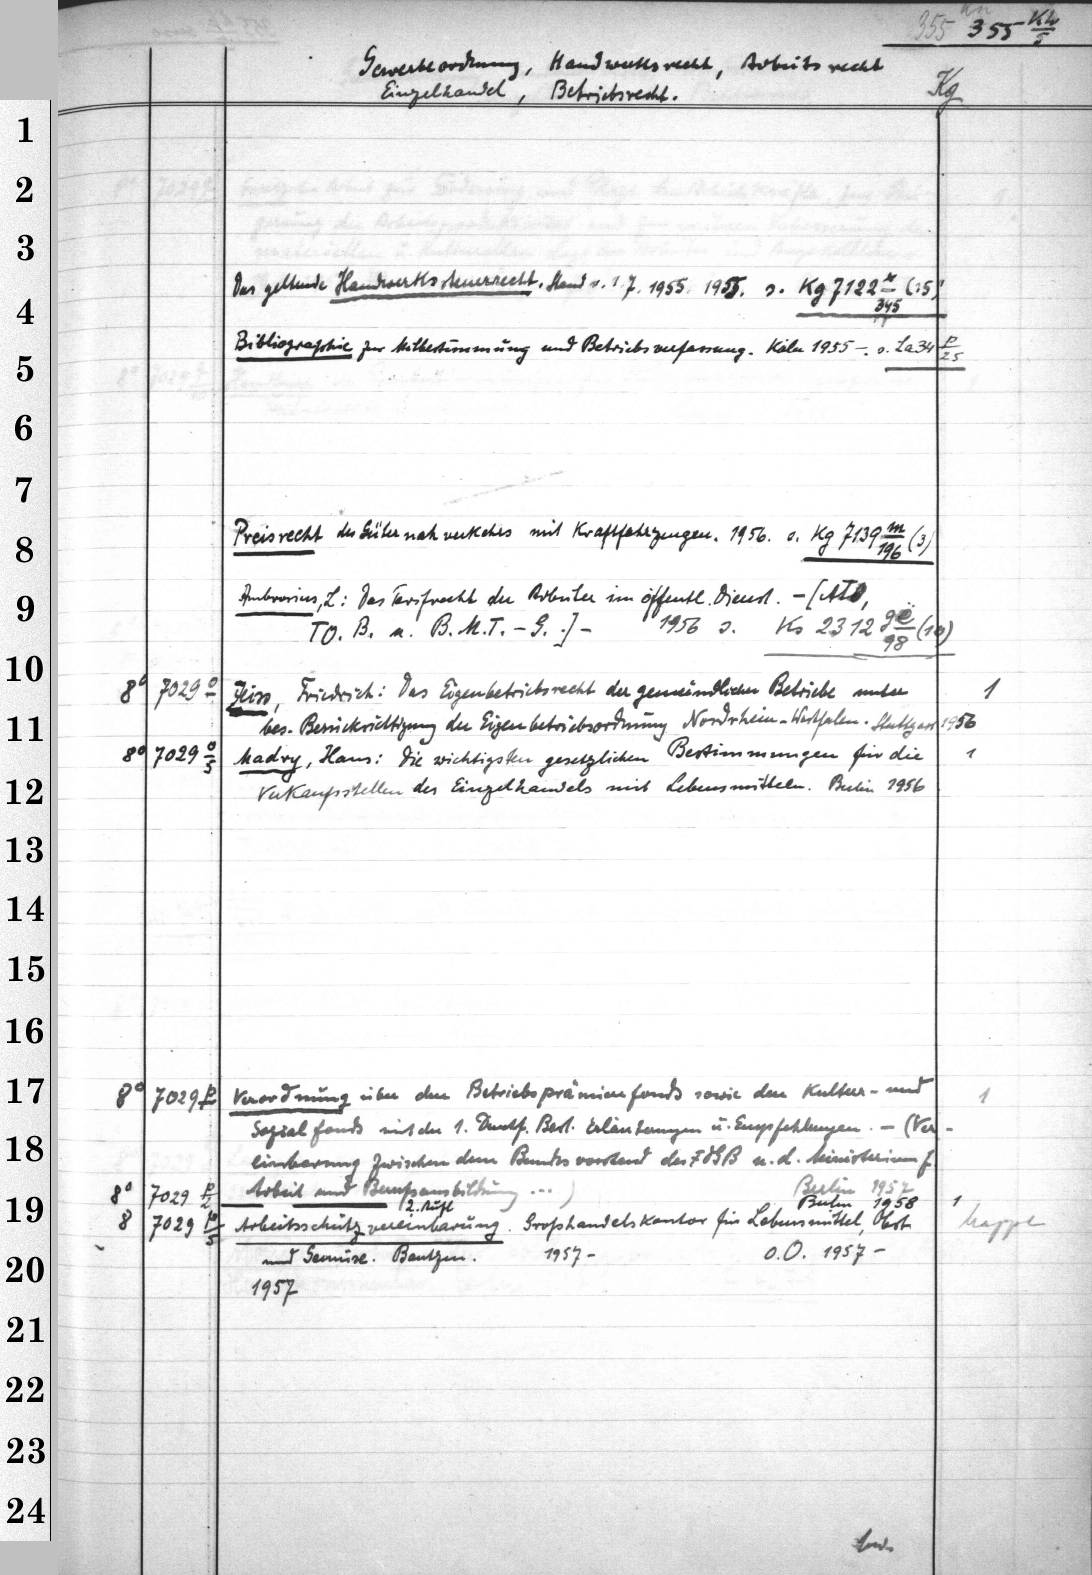 355 355 Kw/5
Gewerbeordnung, Handwerksrecht, Arbeitsrecht
Einzelhandel, Betriebsrecht.
Kg
1
2
3
Das geltende Handwerkssteuerrecht. Stand v. 1.7.1955. 1955. s. Kg 7122 x/345 (15)
4
Bibliographie zur Mitbestimmung und Betriebsverfassung. Köln 1955 –. s. La 34 p/25
5
6
7
Preisrecht des Güternahverkehrs mit Kraftfahrzeugen. 1956. s. Kg 7139 m/196 (3)
8
Ambrosius, L: Das Tarifrecht der Arbeiter im öffentl. Dienst. – [ATO,
9
TO. B. u. B.M.T. – G.] – 1956 s. Ks 2312 gë/98 (10)
10
8° 7029 o Zeiss, Friedrich: Das Eigenbetriebsrecht der gemeindlichen Betriebe unter 1
11
bes. Berücksichtigung der Eigenbetriebsordnung Nordrhein-Westfalen. Stuttgart 1956
8° 7029 o/5 Madry, Hans: Die wichtigsten gesetzlichen Bestimmungen für die 1
12
Verkaufsstellen des Einzelhandels mit Lebensmitteln. Berlin 1956
13
14
15
16
17
8° 7029 p Verordnung über den Betriebsprämienfonds sowie den Kultur- und 1
Sozialfonds mit der 1. Durchf. Best. Erläuterungen u. Empfehlungen. – (Ver-
18
einbarung zwischen dem Bundesvorstand des FDGB u. d. Ministerium f.
Arbeit und Berufsausbildung ...) Berlin 1957
8° 7029 p/2 2. Aufl Berlin 1958 1
19
8 7029 p/5 Arbeitsschutzvereinbarung. Grosshandelskontor für Lebensmittel, Obst Mappe
und Gemüse. Bautzen. 1957 – o.O. 1957 –
20
1957
21
22
23
24